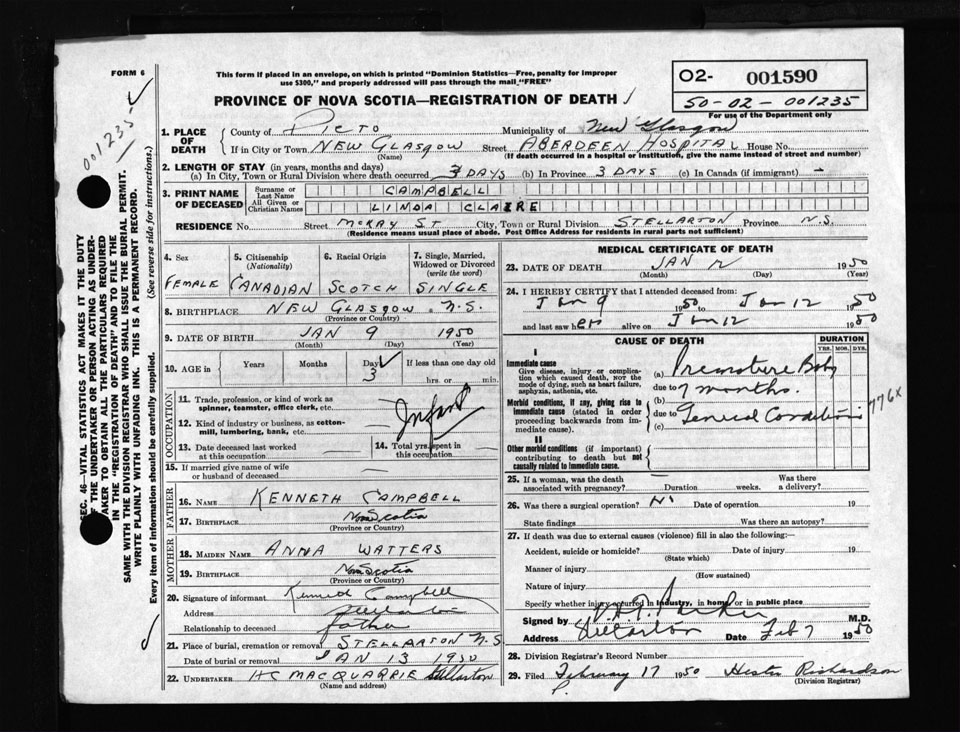 FORM 6
This form if placed in an envelope, on which is printed "Dominion Statistics—Free, penalty for improper
use $300," and properly addressed will pass through the mail "FREE"
PROVINCE OF NOVA SCOTIA—REGISTRATION OF DEATH
O2- 001590
50-02-001235
For use of the Department only
001235
SEC. 46—VITAL STATISTICS ACT MAKES IT THE DUTY
OF THE UNDERTAKER OR PERSON ACTING AS UNDER-
TAKER TO OBTAIN ALL THE PARTICULARS REQUIRED
IN THE "REGISTRATION OF DEATH" AND TO FILE THE
SAME WITH THE DIVISION REGISTRAR WHO SHALL ISSUE THE BURIAL PERMIT.
WRITE PLAINLY WITH UNFADING INK. THIS IS A PERMANENT RECORD.
Every item of information should be carefully supplied. (See reverse side for instructions.)
1. PLACE OF DEATH County of Picto Municipality of New Glasgow
If in City or Town NEW GLASGOW Street ABERDEEN HOSPITAL House No.
(Name) (If death occurred in a hospital or institution, give the name instead of street and number)
2. LENGTH OF STAY (in years, months and days)
(a) In City, Town or Rural Division where death occurred 3 DAYS (b) In Province 3 DAYS (c) In Canada (if immigrant) -
3. PRINT NAME OF DECEASED Surname or Last Name CAMPBELL
All Given or Christian Names LINDA CLAIRE
RESIDENCE No. Street MCKAY ST City, Town or Rural Division STELLARTON Province N.S.
(Residence means usual place of abode. Post Office Address for residents in rural parts not sufficient)
4. Sex 5. Citizenship (Nationality) 6. Racial Origin 7. Single, Married, Widowed or Divorced (write the word)
FEMALE CANADIAN SCOTCH SINGLE
8. BIRTHPLACE NEW GLASGOW N.S.
(Province or Country)
9. DATE OF BIRTH JAN 9 1950
(Month) (Day) (Year)
10. AGE in Years Months Days If less than one day old
3 hrs. or min.
OCCUPATION
11. Trade, profession, or kind of work as
spinner, teamster, office clerk, etc.
Infant
12. Kind of industry or business, as cotton-
mill, lumbering, bank, etc.
13. Date deceased last worked
at this occupation
14. Total yrs. spent in
this occupation
15. If married give name of wife
or husband of deceased
FATHER
16. NAME KENNETH CAMPBELL
17. BIRTHPLACE Nova Scotia
(Province or Country)
MOTHER
18. MAIDEN NAME ANNA WATTERS
19. BIRTHPLACE Nova Scotia
(Province or Country)
20. Signature of informant Kenneth Campbell
Address Stellarton
Relationship to deceased father
21. Place of burial, cremation or removal STELLARTON N.S
Date of burial or removal JAN 13 1950
22. UNDERTAKER HC MACQUARRIE Stellarton
(Name and address)
MEDICAL CERTIFICATE OF DEATH
23. DATE OF DEATH JAN 12 1950
(Month) (Day) (Year)
24. I HEREBY CERTIFY that I attended deceased from:
Jan 9 1950 to Jan 12 1950
and last saw her alive on Jan 12 1950
CAUSE OF DEATH DURATION
YRS. MOS. DYS.
I
Immediate cause
Give disease, injury or complica-
tion which caused death, NOT the
mode of dying, such as heart failure,
asphyxia, asthenia, etc.
(a) Premature Baby
due to 7 months.
Morbid conditions, if any, giving rise to
immediate cause (stated in order
proceeding backwards from im-
mediate cause).
(b)
due to General Conditions
(c)
776X
II
Other morbid conditions (if important)
contributing to death but not
causally related to immediate cause.
25. If a woman, was the death Was there
associated with pregnancy? Duration weeks. a delivery?
26. Was there a surgical operation? Date of operation 19
State findings Was there an autopsy?
27. If death was due to external causes (violence) fill in also the following:
Accident, suicide or homicide? Date of injury 19
(State which)
Manner of injury
(How sustained)
Nature of injury
Specify whether injury occurred in industry, in home or in public place
Signed by M.D.
Address Stellarton Date Feb 7 1950
28. Division Registrar's Record Number
29. Filed February 17 1950 Hester Richardson
(Division Registrar)